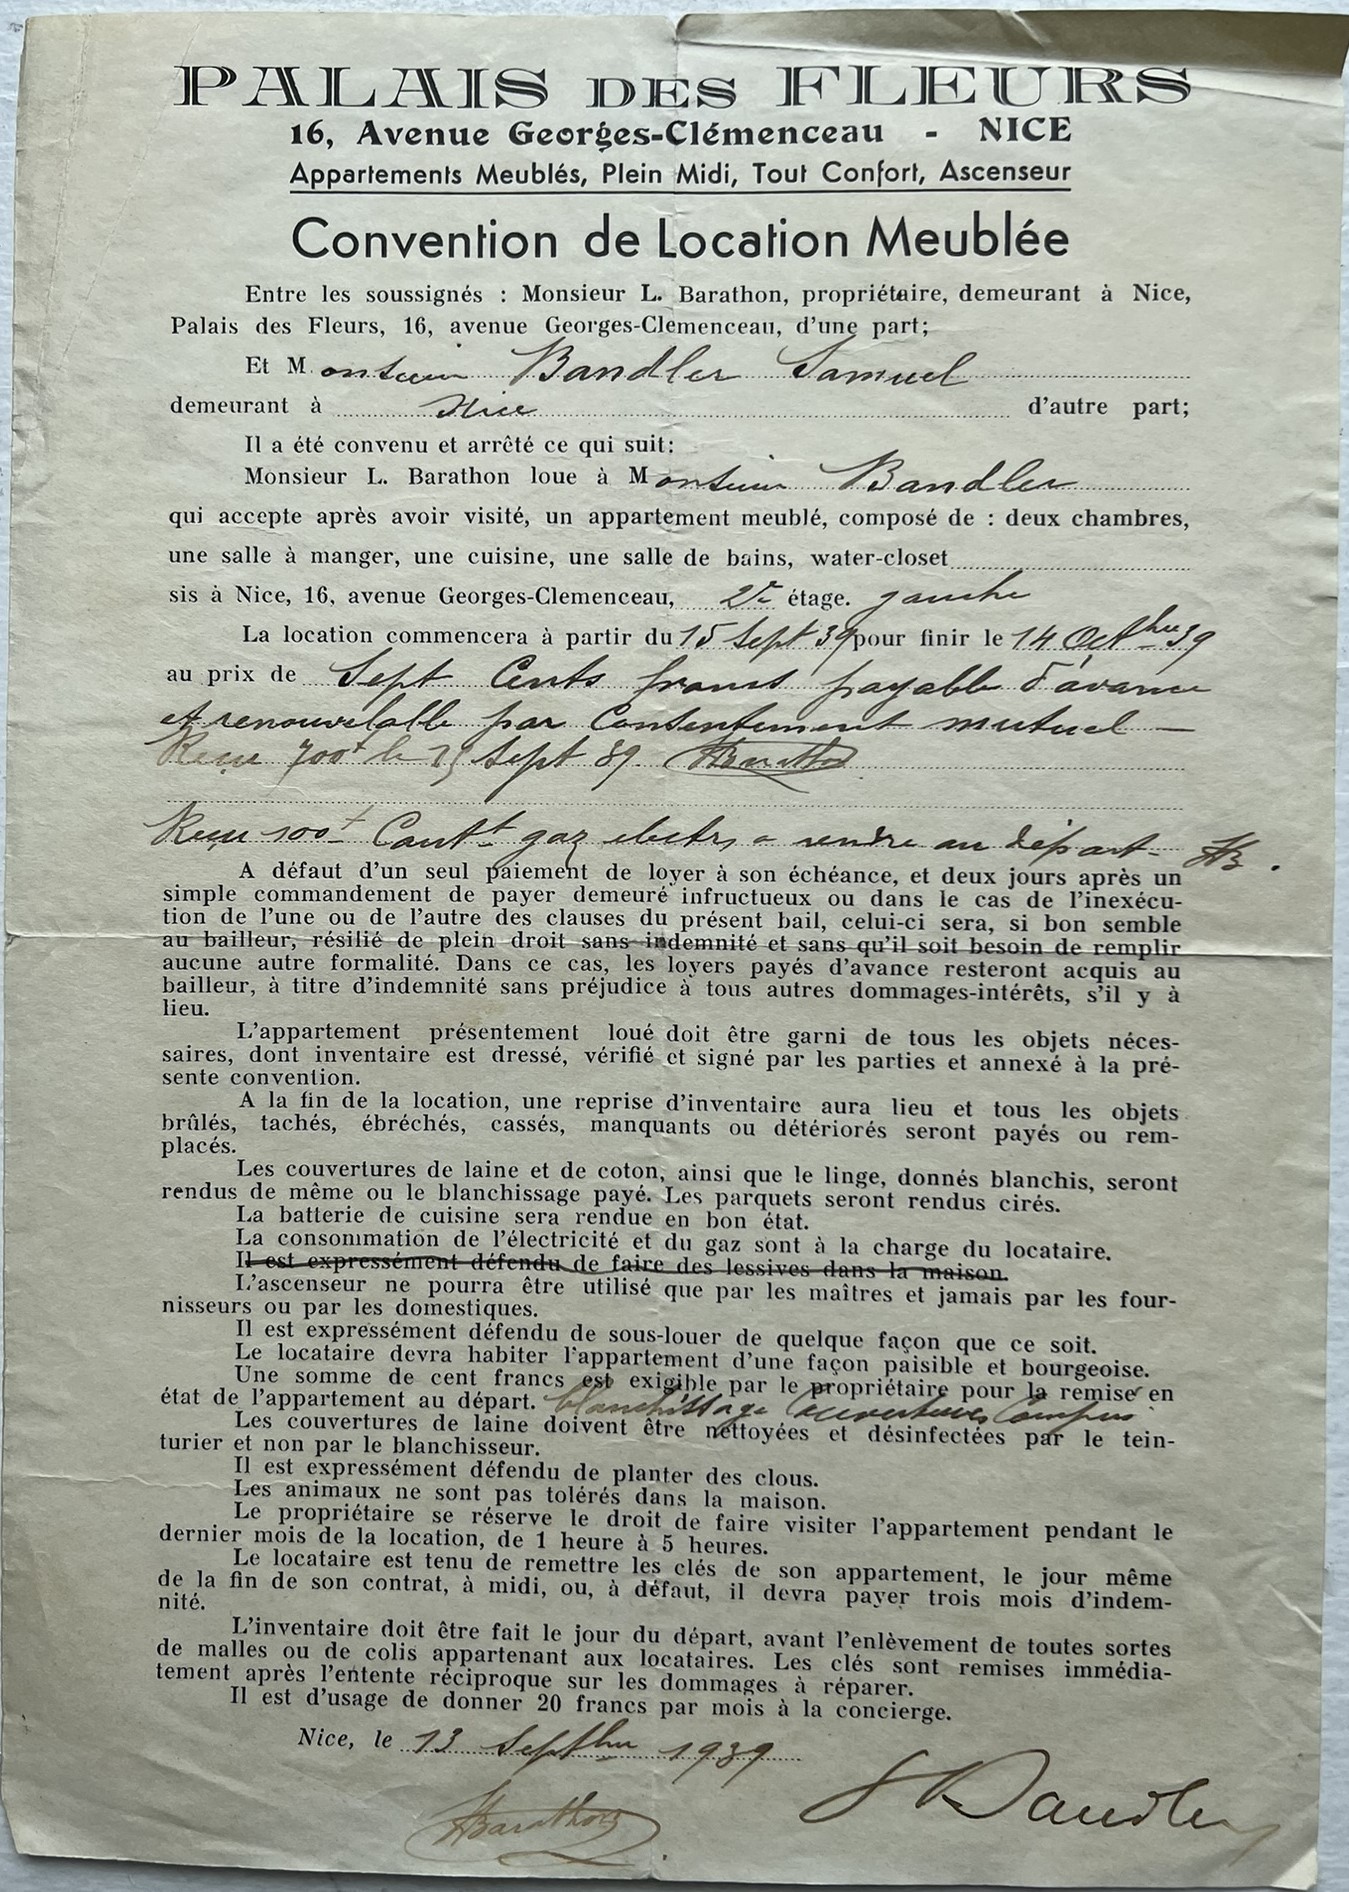 PALAIS DES FLEURS
16, Avenue Georges-Clémenceau - NICE
Appartements Meublés, Plein Midi, Tout Confort, Ascenseur
Convention de Location Meublée
Entre les soussignés : Monsieur L. Barathon, propriétaire, demeurant à Nice,
Palais des Fleurs, 16, avenue Georges-Clemenceau, d'une part;
Et Monsieur Bandler Samuel
demeurant à Nice d'autre part;
Il a été convenu et arrêté ce qui suit:
Monsieur L. Barathon loue à Monsieur Bandler
qui accepte après avoir visité, un appartement meublé, composé de : deux chambres,
une salle à manger, une cuisine, une salle de bains, water-closet
sis à Nice, 16, avenue Georges-Clemenceau, 2e étage. gauche
La location commencera à partir du 15 Sept 39 pour finir le 14 Octbre 39
au prix de Sept Cents francs payable d'avance
et renouvelable par Consentement mutuel —
Recu 700f le Sept 39. Barathon
Recu 100f Cautt gaz electr a rendre au départ - HB.
A défaut d'un seul paiement de loyer à son échéance, et deux jours après un
simple commandement de payer demeuré infructueux ou dans le cas de l'inexécu-
tion de l'une ou de l'autre des clauses du présent bail, celui-ci sera, si bon semble
au bailleur, résilié de plein droit sans indemnité et sans qu'il soit besoin de remplir
aucune autre formalité. Dans ce cas, les loyers payés d'avance resteront acquis au
bailleur, à titre d'indemnité sans préjudice à tous autres dommages-intérêts, s'il y à
lieu.
L'appartement présentement loué doit être garni de tous les objets néces-
saires, dont inventaire est dressé, vérifié et signé par les parties et annexé à la pré-
sente convention.
A la fin de la location, une reprise d'inventaire aura lieu et tous les objets
brûlés, tachés, ébréchés, cassés, manquants ou détériorés seront payés ou rem-
placés.
Les couvertures de laine et de coton, ainsi que le linge, donnés blanchis, seront
rendus de même ou le blanchissage payé. Les parquets seront rendus cirés.
La batterie de cuisine sera rendue en bon état.
La consommation de l'électricité et du gaz sont à la charge du locataire.
Il est expressément défendu de faire des lessives dans la maison.
L'ascenseur ne pourra être utilisé que par les maîtres et jamais par les four-
nisseurs ou par les domestiques.
Il est expressément défendu de sous-louer de quelque façon que ce soit.
Le locataire devra habiter l'appartement d'une façon paisible et bourgeoise.
Une somme de cent francs est exigible par le propriétaire pour la remise en
état de l'appartement au départ. blanchissage Couvertures Compris
Les couvertures de laine doivent être nettoyées et désinfectées par le tein-
turier et non par le blanchisseur.
Il est expressément défendu de planter des clous.
Les animaux ne sont pas tolérés dans la maison.
Le propriétaire se réserve le droit de faire visiter l'appartement pendant le
dernier mois de la location, de 1 heure à 5 heures.
Le locataire est tenu de remettre les clés de son appartement, le jour même
de la fin de son contrat, à midi, ou, à défaut, il devra payer trois mois d'indem-
nité.
L'inventaire doit être fait le jour du départ, avant l'enlèvement de toutes sortes
de malles ou de colis appartenant aux locataires. Les clés sont remises immédia-
tement après l'entente réciproque sur les dommages à réparer.
Il est d'usage de donner 20 francs par mois à la concierge.
Nice, le 13 Septbre 1939
Barathon
S Bandler